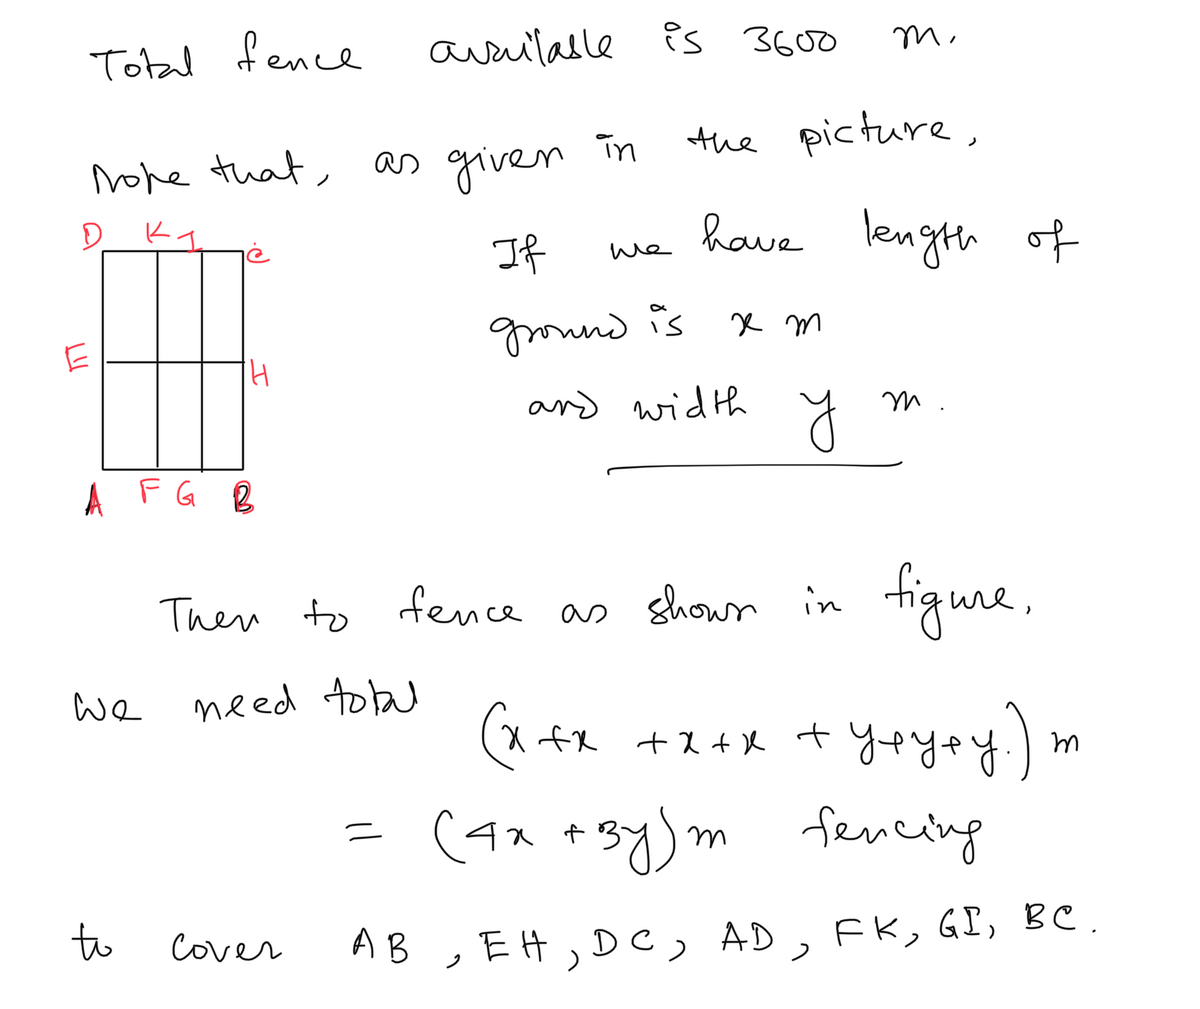 Total fence available is 3600 m.
Note that, as given in the picture,
D K I C
If we have length of
ground is x m
E H
and width y m.
A F G B
Then to fence as shown in figure,
we need total
(x + x + x + x + y + y + y.) m
= (4x + 3y) m fencing
to cover AB, EH, DC, AD, FK, GI, BC.